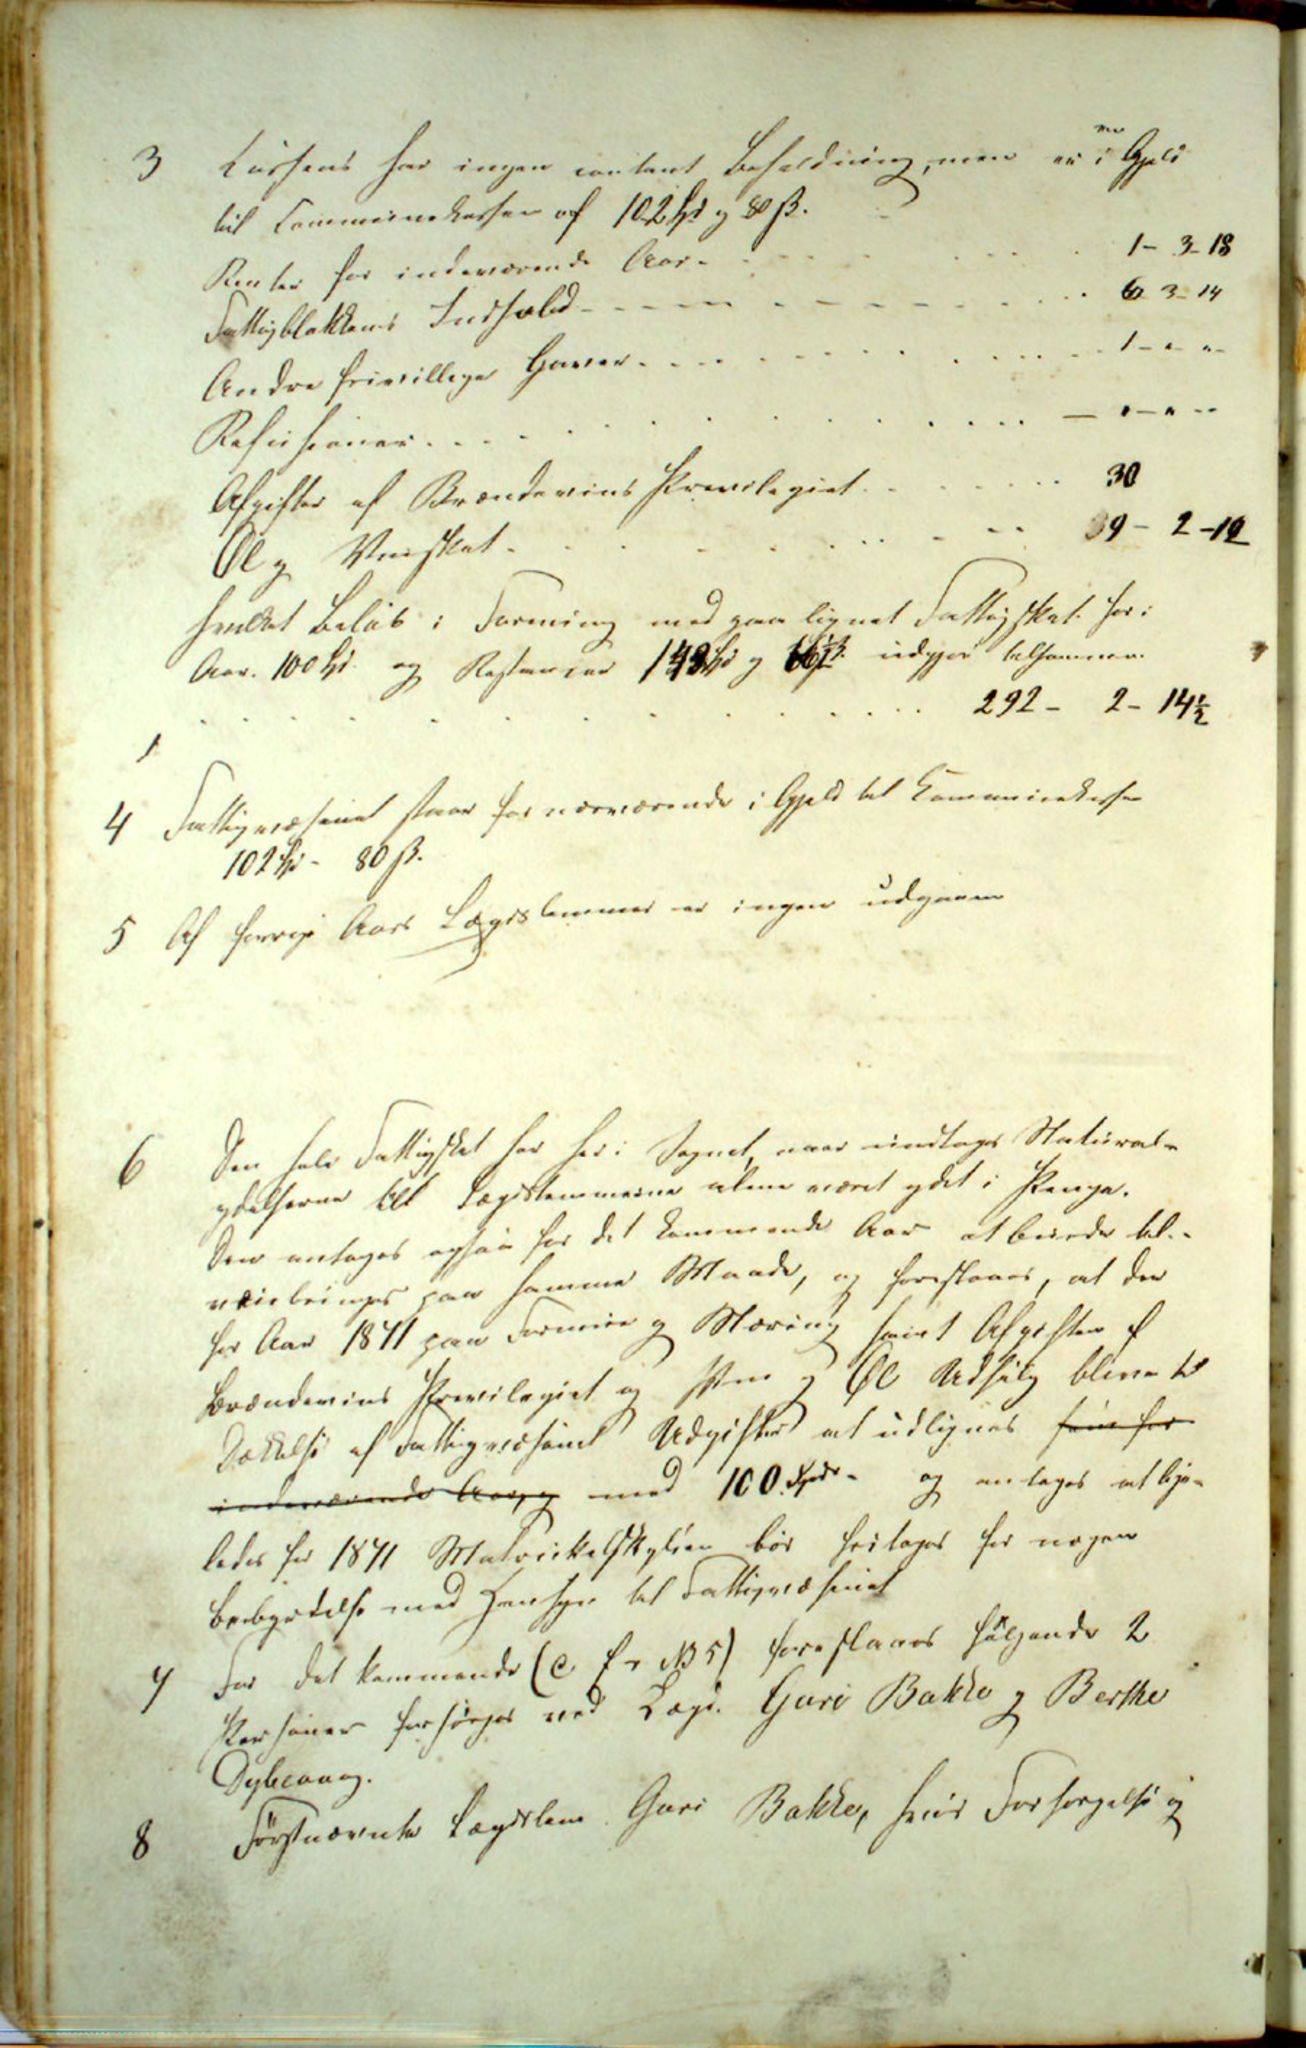 3 Kassens har ingen contant Beholdning, men er i Gjeld
til Communekassen af 102 Spd og 80 ß.
Renter for indeværende Aar 1 - 3 - 18
Fattigblokkens Indhold 6 3 - 14
Andre frivillige Gaver 1 - " - "
Refusioner - " - " - "
Afgifter af Brændevins Previlegiet 30
Øl og Vinskat 39 - 2 - 12
hvilket Beløb i Forening med paa lignet Fattigskat for i
Aar 100 Spd og Restancer 148 Spd og ß. udgjør tilsammen
292 - 2 - 14½
4 Fattigvæsenet staar for nærværende i Gjeld til Communekassen
102 Spd - 80 ß.
5 Af forrige Aars Lægdslemmer er ingen udgaaen
6 Den hele Fattigskat har her i Sognet, naar undtages Natural-
ydelserne til Lægdslemmerne alene været ydet i Penge.
Den antages ogsaa for det kommende Aar at burde til-
veiebringes paa samme Maade, og foreslaaes, at der
for Aar 1841 paa Formue og Næring samt Afgiften af
Brændevins Previlegiet og Viin og Øl Udsalg bliver til
Dækkelse af Fattigvæsenets Udgifter at udlignes som for
indeværende Aar, og med 100 Spdr - og antages at lige-
ledes for 1841 Matrickelskylden bør fritages for nogen
bebyrdelse med Hensyn til Fattigvæsenet
7 For det kommende (c f - N 5) foreslaaes følgende 2
Personer forsørges ved Lægd. Guri Bakke og Berthe
Dybevaag.
8 Førstnævnte Lægdslem Guri Bakke, hvis Forsørgelse og